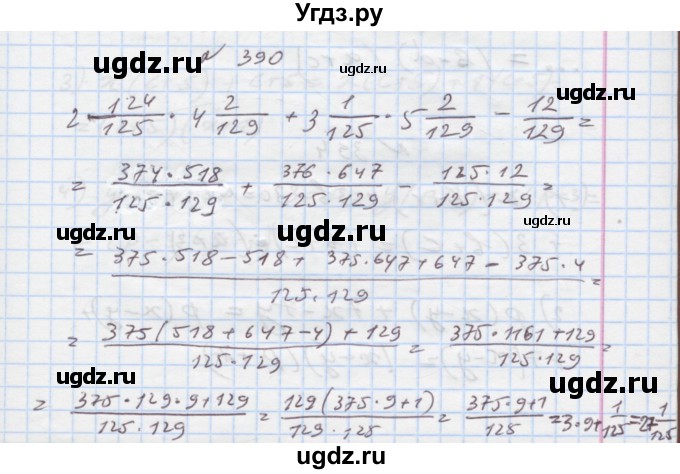 Угдз.ру
№ 390
ugdz.ru ugdz.ru
2 124/125 · 4 2/129 + 3 1/125 · 5 2/129 - 12/129 =
= 374·518/125·129 + 376·647/125·129 - 125·12/125·129 =
ugdz.ru ugdz.ru
= 375·518-518+375·647+647-375·4/125·129 =
ugdz.ru
= 375(518+647-4)+129/125·129 = 375·1161+129/125·129 =
ugdz.ru ugdz.ru
= 375·129·9+129/125·129 = 129(375·9+1)/129·125 = 375·9+1/125 = 3·9+1/125 = 27 1/125
ugdz.ru